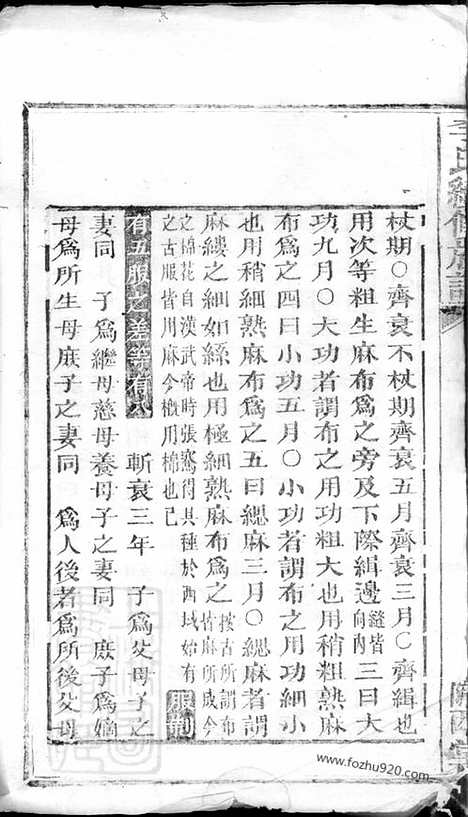 李氏續修族譜
杖期〇齊衰不杖期齊衰五月齊衰三月〇齊緝也
用次等粗生麻布爲之旁及下際緝邊縫皆向內三曰大
功九月〇大功者謂布之用功粗大也用稍粗熟麻
布爲之四曰小功五月〇小功者謂布之用功細小
也用稍細熟麻布爲之五曰緦麻三月〇緦麻者謂
麻縷之細如絲也用極細熟麻布爲之按古所謂布皆麻所成今
之棉花自漢武帝時張騫得其種於西域始有
之古服皆用麻今槪用棉也已
服制
有五服之差等有八 斬衰三年 子爲父母子之
妻同 子爲繼母慈母養母子之妻同 庶子爲嫡
母爲所生母庶子之妻同 爲人後者爲所後父母
www.fozhu920.com